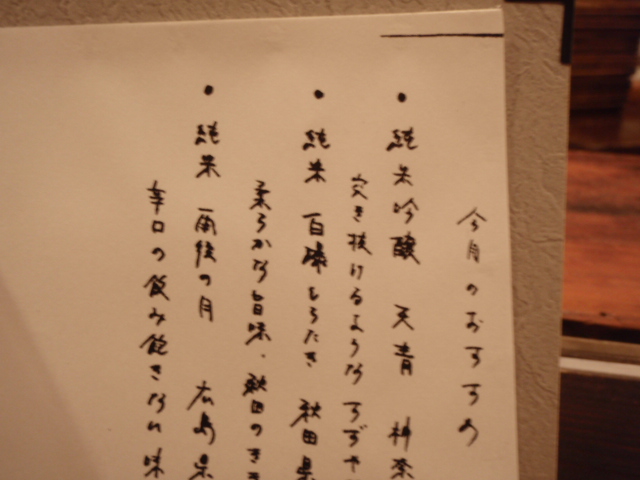 今月のおすすめ
・純米吟醸 天青 神奈
突き抜けるような すずや
・純米 百磲もろたき 秋田県
柔らかな旨味、秋田のきき
・純米 雨後の月 広島県
辛口の飲み飽きない味